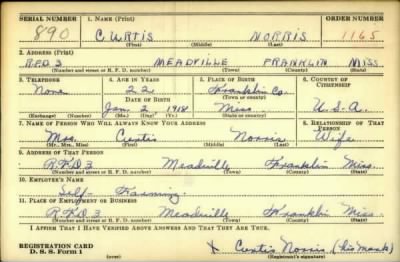 SERIAL NUMBER 1. NAME (Print) ORDER NUMBER
890 CURTIS NORRIS 1165
(First) (Middle) (Last)
2. ADDRESS (Print)
R.F.D 3 MEADVILLE FRANKLIN MISS
(Number and street or R. F. D. number) (Town) (County) (State)
3. TELEPHONE 4. AGE IN YEARS 5. PLACE OF BIRTH 6. COUNTRY OF CITIZENSHIP
None 22 Franklin Co.
DATE OF BIRTH (Town or county)
Jan. 2 1918 Miss. U.S.A.
(Exchange) (Number) (Mo.) (Day) (Yr.) (State or country)
7. NAME OF PERSON WHO WILL ALWAYS KNOW YOUR ADDRESS 8. RELATIONSHIP OF THAT PERSON
Mrs. Curtis Norris Wife
(Mr., Mrs., Miss) (First) (Middle) (Last)
9. ADDRESS OF THAT PERSON
R.F.D 3 Meadville Franklin Miss.
(Number and street or R. F. D. number) (Town) (County) (State)
10. EMPLOYER'S NAME
Self- Farming
11. PLACE OF EMPLOYMENT OR BUSINESS
R.F.D 3 Meadville Franklin Miss.
(Number and street or R. F. D. number) (Town) (County) (State)
I AFFIRM THAT I HAVE VERIFIED ABOVE ANSWERS AND THAT THEY ARE TRUE.
REGISTRATION CARD
D. S. S. Form 1 X Curtis Norris (his mark)
(over) (Registrant's signature)